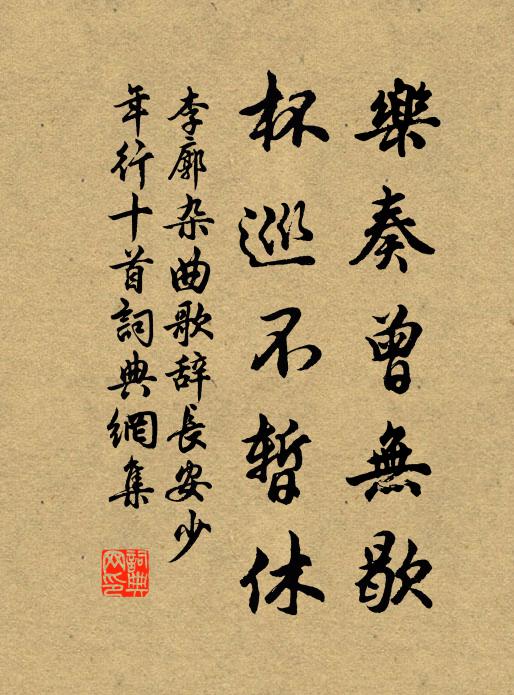 樂奏曾無歇
杯巡不暫休
李廓杂曲歌辞長安少
年行十首詞典網集
詞典
网印